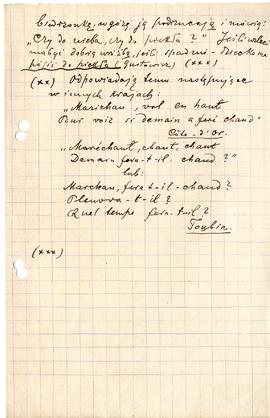 Biedronkę, w górę ją podrzucają i mówią:
"Czy do nieba, czy do piekła?" Jeśli wzleci
ma być dobrą wróżbą, jeśli spadnie - dziecko ma
pójść do piekła (Gustawicz) (xxx)
(xx) Odpowiadają temu następujące
w innych krajach:
"Marichau, vol en haut
Pour voir si demain a feré chaud"
Côte-d'Or.
"Maréchaut, chaut, chaut
Demain fera-t-il chaud?"
lub:
Marchau, fera-t-il-chaud?
Pleuvra-t-il?
Quel temps fera-t-il?
Toubin.
(xxx)